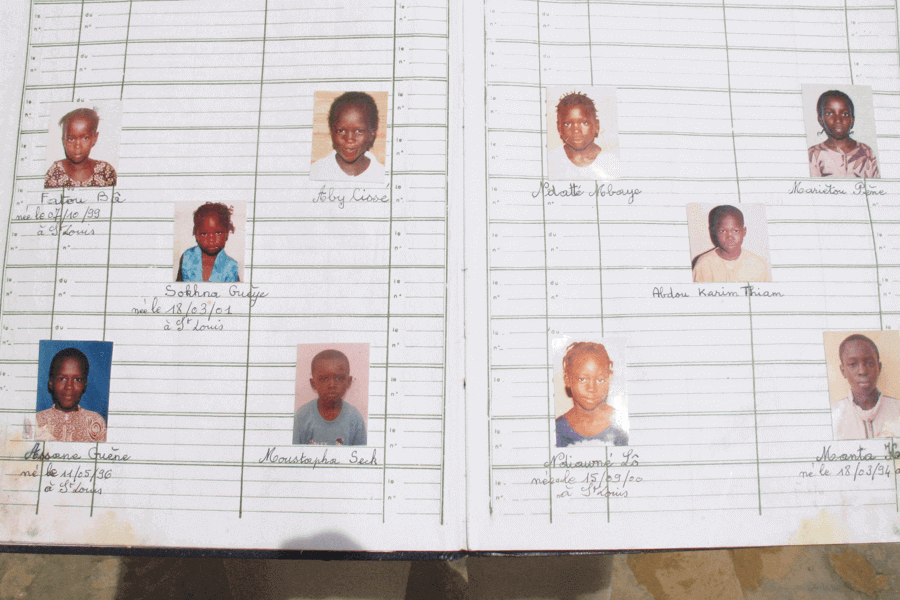 Fatou Bâ
née le 07/10/99
à St Louis
Aby Cissé
Sokhna Guèye
né le 18/03/01
à St Louis
Assane Guène
né le 11/05/96
à St Louis
Moustapha Seck
Ndatté Mbaye
Mariétou Pène
Abdou Karim Thiam
Ndiawné Lô
née le 15/09/00
à St Louis
Manta
né le 18/03/94